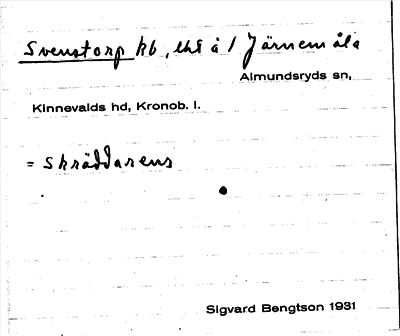 Svenstorp kb, lht å 1 Järnemåla
Almundsryds sn,
Kinnevalds hd, Kronob. l.
= Skräddarens
Sigvard Bengtson 1931